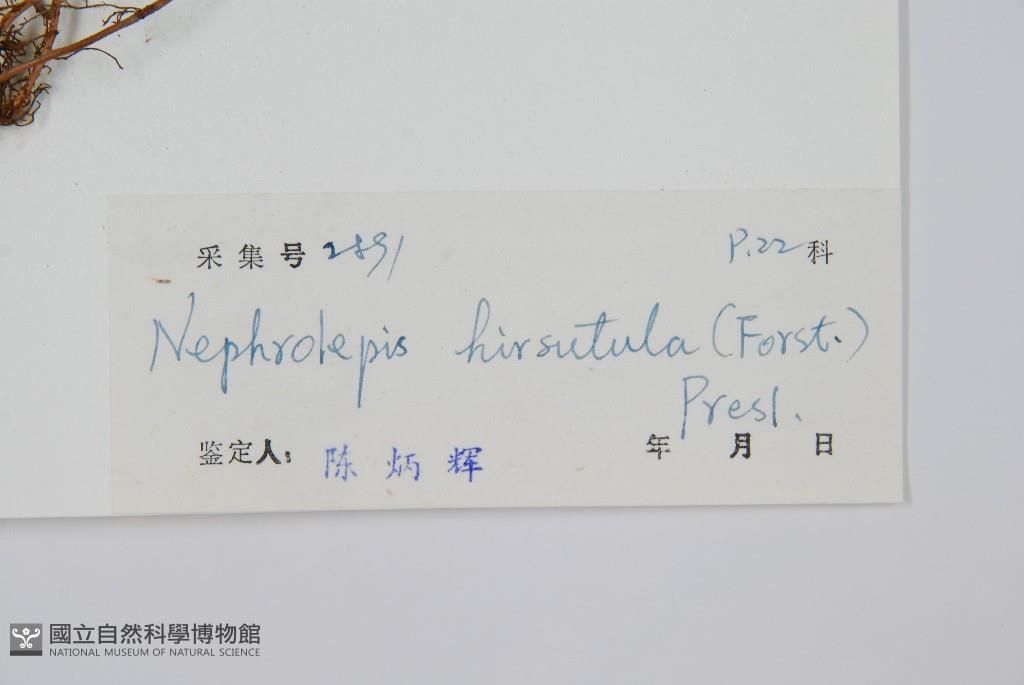 采集号 2891 P.22 科
Nephrolepis hirsutula (Forst.)
Presl.
鉴定人: 陈炳辉 年 月 日
國立自然科學博物館
NATIONAL MUSEUM OF NATURAL SCIENCE